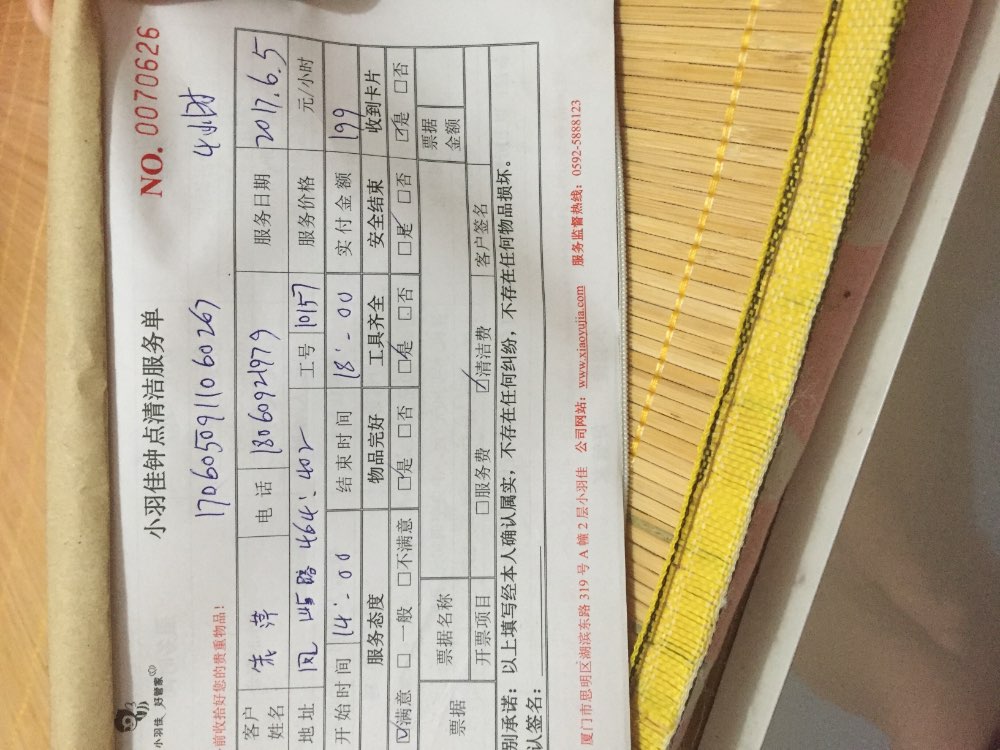 小羽佳 好管家
小羽佳钟点清洁服务单
NO. 0070626
前收拾好您的贵重物品！
1706050911060267 4小时
客户姓名 电话 18060921979 服务日期 2017.6.5
地址 464 402 工号 10157 服务价格 元/小时
开始时间 14:00 结束时间 18:00 实付金额 199
服务态度 物品完好 工具齐全 安全结束 收到卡片
☑满意 □一般 □不满意 ☑是 □否 ☑是 □否 ☑是 □否 ☑是 □否
票据 票据名称 票据金额
开票项目 □服务费 ☑清洁费 客户签名
别承诺：以上填写经本人确认属实，不存在任何纠纷，不存在任何物品损坏。
认签名：
厦门市思明区湖滨东路 319 号 A 幢 2 层小羽佳 公司网站：www.xiaoyujia.com 服务监督热线：0592-5888123